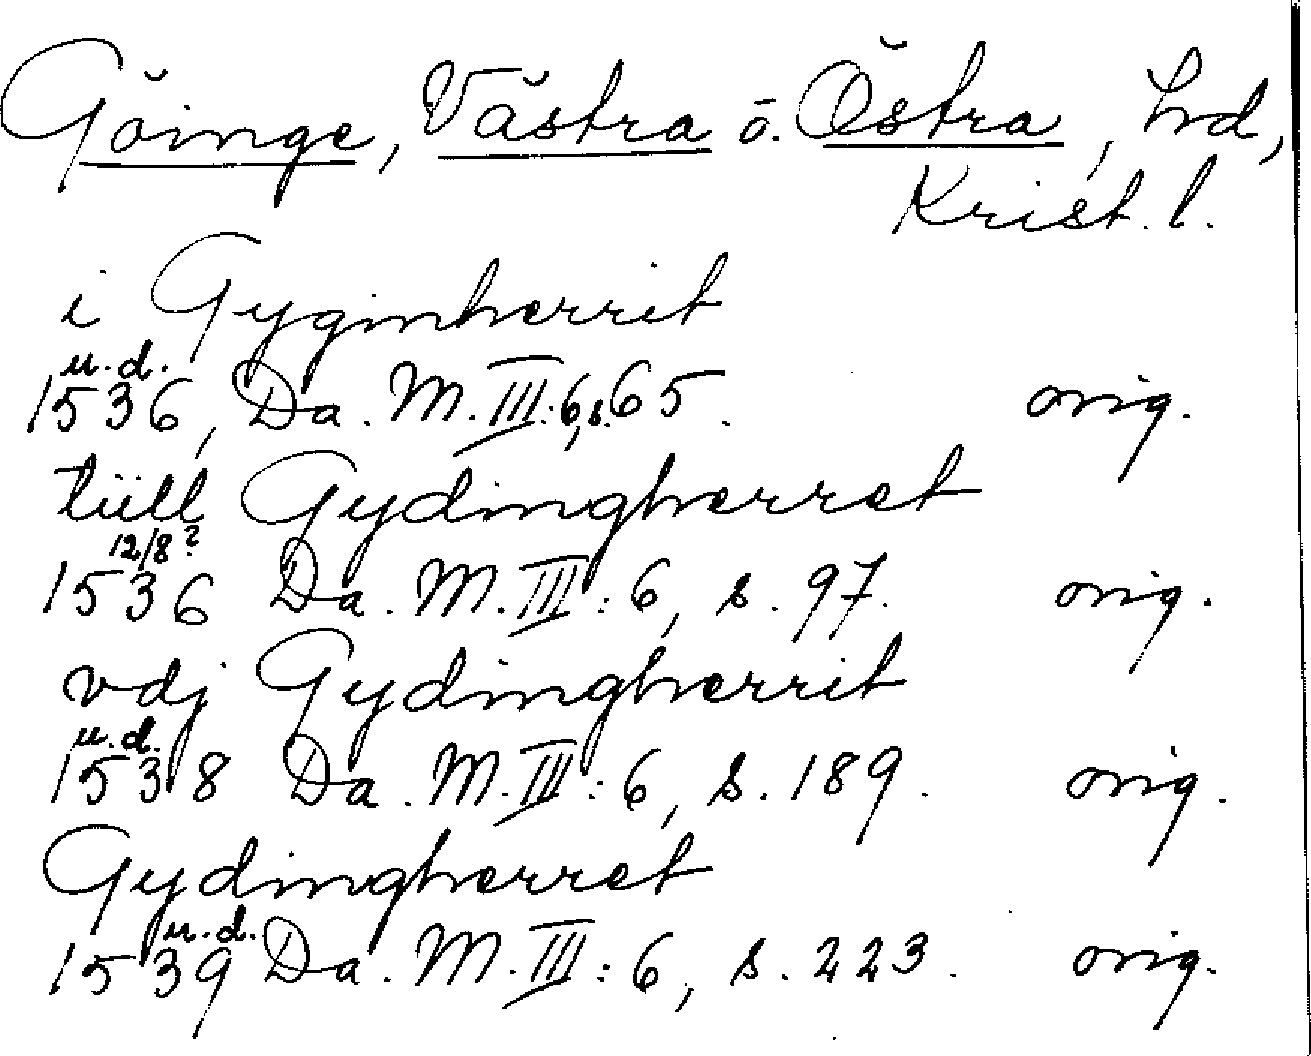 Göinge, Västra o. Östra, hd,
Krist. l.
i Gyginherrit
u.d.
1536, Da. M. III:6, s. 65. orig.
tüll Gydingherret
12/8?
1536 Da. M. III: 6, s. 97. orig.
vdj Gydingherrit
u.d.
1538 Da. M. III: 6, s. 189. orig.
Gydingherret
u.d.
1539 Da. M. III: 6, s. 223. orig.